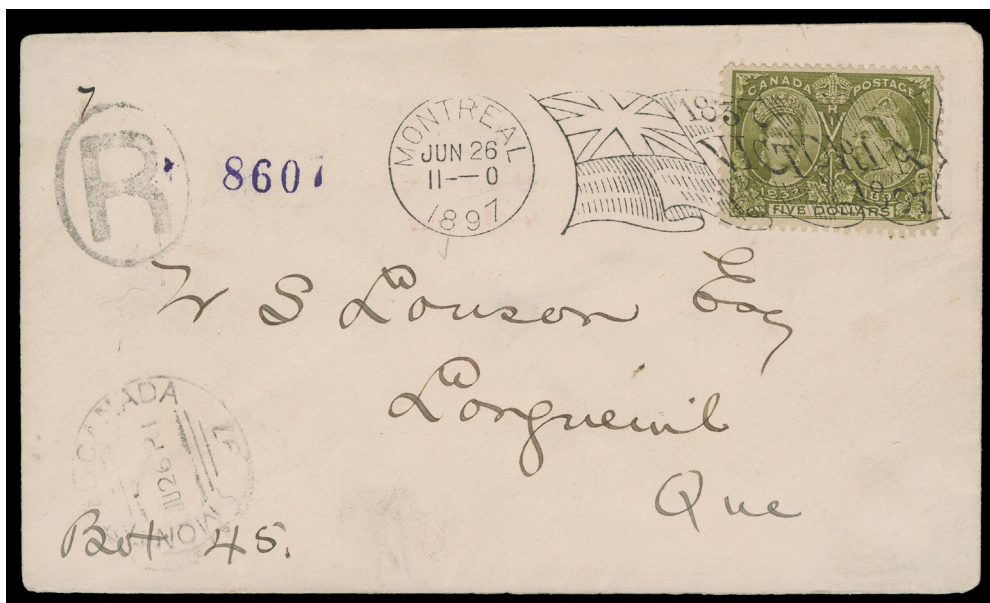 7
R
8607
MONTREAL
JUN 26
11—0
1897
1837
VICTORIA
1897
CANADA POSTAGE
1837 1897
FIVE DOLLARS
W S Louson Esq
Longueuil
Que
CANADA
MON
Box 45.